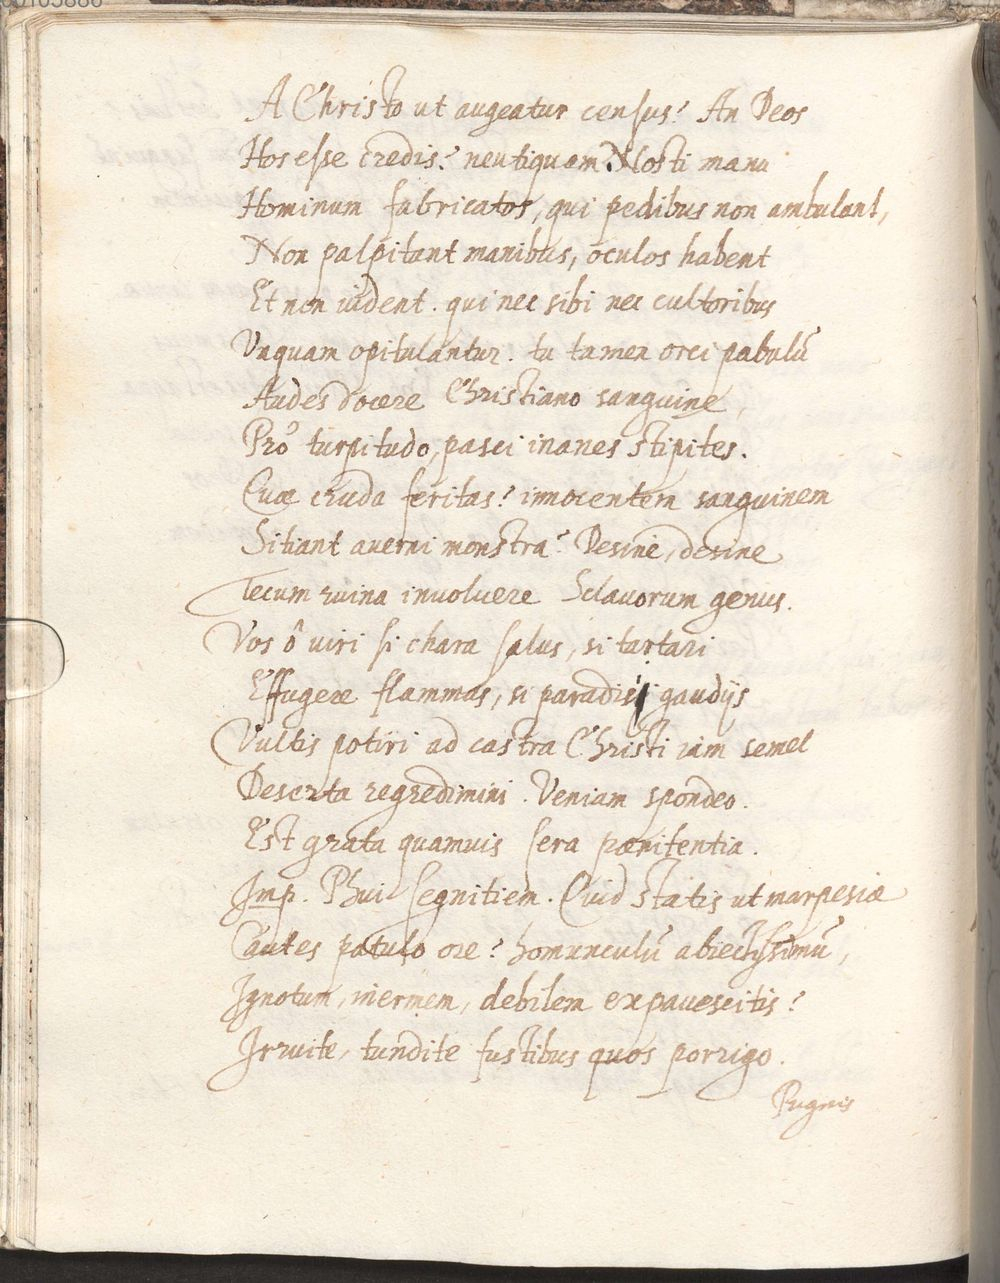 A Christo ut augeatur census? An Deos
Hos esse credis? neutiquam? Nosti manu
Hominum fabricatos, qui pedibus non ambulant,
Non palpitant manibus, oculos habent
Et non vident. qui nec sibi nec cultoribus
Vnquam opitulantur. tu tamen orci pabulū
Audes docere Christiano sanguine,
Pró turpitudo, pasci inanes stipites.
Quæ cruda feritas? innocentem sanguinem
Sitiant averni monstra? Desine, desine
Tecum ruina involvere Sclavorum genus.
Vos ô viri si chara salus, si tartari
Effugere flammas, si paradisi gaudijs
Vultis potiri ad castra Christi iam semel
Deserta regredimini. Veniam spondeo.
Est grata quamvis sera pænitentia.
Imp. Phui segnitiem. Quid statis ut marpesiæ
Cautes patulo ore? homunculū abiectissimū,
Ignotum, inermem, debilem expavescitis?
Irruite, tundite fustibus quos porrigo.
Pugnis